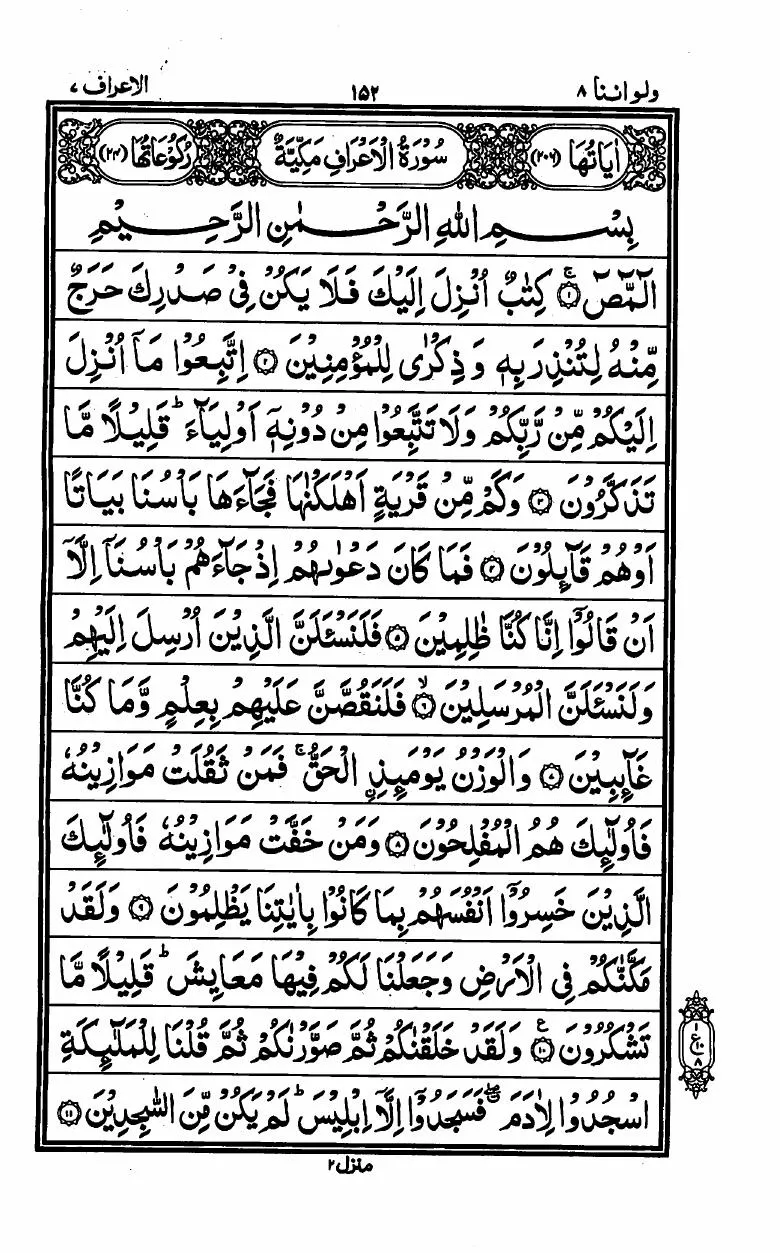 ولو اننا ۸
۱۵۲
الاعراف ۷
اٰيَاتُهَا (۲۰۶)
سُوْرَةُ الْاَعْرَافِ مَكِّيَّةٌ
رُكُوْعَاتُهَا (۲۴)
بِسْمِ اللّٰهِ الرَّحْمٰنِ الرَّحِيْمِ
الٓمّٓصٓ ۚ﴿۱﴾ كِتٰبٌ اُنْزِلَ اِلَيْكَ فَلَا يَكُنْ فِیْ صَدْرِكَ حَرَجٌ
مِّنْهُ لِتُنْذِرَ بِهٖ وَ ذِكْرٰی لِلْمُؤْمِنِيْنَ ﴿۲﴾ اِتَّبِعُوْا مَاۤ اُنْزِلَ
اِلَيْكُمْ مِّنْ رَّبِّكُمْ وَلَا تَتَّبِعُوْا مِنْ دُوْنِهٖۤ اَوْلِيَآءَ ؕ قَلِيْلًا مَّا
تَذَكَّرُوْنَ ﴿۳﴾ وَكَمْ مِّنْ قَرْيَةٍ اَهْلَكْنٰهَا فَجَآءَهَا بَاْسُنَا بَيَاتًا
اَوْهُمْ قَآئِلُوْنَ ﴿۴﴾ فَمَا كَانَ دَعْوٰىهُمْ اِذْ جَآءَهُمْ بَاْسُنَاۤ اِلَّاۤ
اَنْ قَالُوْۤا اِنَّا كُنَّا ظٰلِمِيْنَ ﴿۵﴾ فَلَنَسْـَٔلَنَّ الَّذِيْنَ اُرْسِلَ اِلَيْهِمْ
وَلَنَسْـَٔلَنَّ الْمُرْسَلِيْنَ ۙ﴿۶﴾ فَلَنَقُصَّنَّ عَلَيْهِمْ بِعِلْمٍ وَّمَا كُنَّا
غَآئِبِيْنَ ﴿۷﴾ وَالْوَزْنُ يَوْمَئِذِ ِۨالْحَقُّ ۚ فَمَنْ ثَقُلَتْ مَوَازِيْنُهٗ
فَاُولٰٓئِكَ هُمُ الْمُفْلِحُوْنَ ﴿۸﴾ وَمَنْ خَفَّتْ مَوَازِيْنُهٗ فَاُولٰٓئِكَ
الَّذِيْنَ خَسِرُوْۤا اَنْفُسَهُمْ بِمَا كَانُوْا بِاٰيٰتِنَا يَظْلِمُوْنَ ﴿۹﴾ وَلَقَدْ
مَكَّنّٰكُمْ فِی الْاَرْضِ وَجَعَلْنَا لَكُمْ فِيْهَا مَعَايِشَ ؕ قَلِيْلًا مَّا
تَشْكُرُوْنَ ﴿۱۰﴾ ع وَلَقَدْ خَلَقْنٰكُمْ ثُمَّ صَوَّرْنٰكُمْ ثُمَّ قُلْنَا لِلْمَلٰٓئِكَةِ
اسْجُدُوْا لِاٰدَمَ ۖۗ فَسَجَدُوْۤا اِلَّاۤ اِبْلِيْسَ ؕ لَمْ يَكُنْ مِّنَ السّٰجِدِيْنَ ﴿۱۱﴾
۱
ع ۱۰
۸
منزل ۲